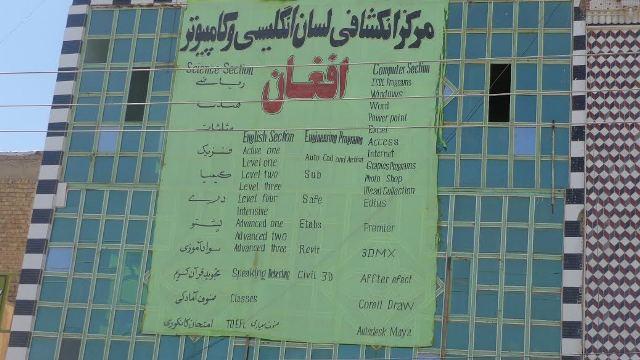 مرکز انکشافی لسان انگلیسی و کامپیوتر
افغان
Science Section
ریاضی
هندسه
مثلثات
فزیک
کیمیا
دری
پشتو
سواد آموزی
تجوید قرآن کریم
صنوف آمادگی
امتحان کانکوری
English Section
Active one
Level one
Level two
Level three
Level four
Intensive
Advanced one
Advanced two
Advanced three
Speaking
Classes
TOEFL
Engineering Programs
Auto Cad
Sub
Safe
Etabs
Revit
Civil 3D
Computer Section
Programs
Windows
Word
Power point
Excel
Access
Internet
Programs
Photo Shop
Collection
Edius
Premier
3DMX
Affter efect
Corell Draw
Autodesk Maya